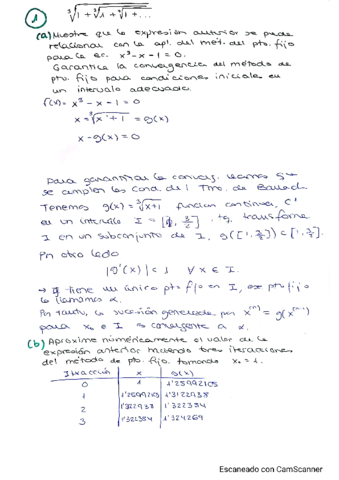 1
∛(1+∛(1+∛(1+...
(a) Muestre que la expresión anterior se puede
relacionar con la apl. del mét. del pto. fijo
para la ec. x³ - x - 1 = 0.
Garantice la convergencia del método de
pto. fijo para condiciones iniciales en
un intervalo adecuado.
f(x) = x³ - x - 1 = 0
x = ∛(x + 1) = g(x)
x - g(x) = 0
Para garantizar la converg. veamos si
se cumplen las cond. del Tmo. de Banach
Tenemos g(x) = ∛(x+1) funcion continua, C¹
en un intervalo I = [1, 3/2] tq. transforma
I en un subconjunto de I, g([1, 3/2]) ⊂ [1, 3/2].
Por otro lado
|g'(x)| < 1 ∀ x ∈ I.
→ ∃ tiene un único pto fijo en I, ese pto. fijo
lo llamamos α.
Por tanto, la sucesión generada por x⁽ⁿ⁾ = g(x⁽ⁿ⁻¹⁾)
para x₀ ∈ I es convergente a α.
(b) Aproxime numéricamente el valor de la
expresión anterior haciendo tres iteraciones
del método de pto. fijo tomando x₀ = 1.
Iteración x g(x)
0 1 1'25992105
1 1'25992105 1'3122938
2 1'322354
3 1'322354 1'324269
Escaneado con CamScanner